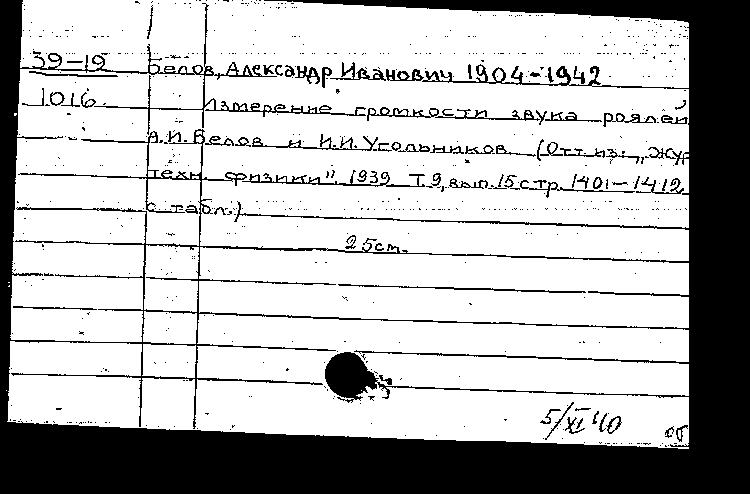 39-19 Белов, Александр Иванович 1904-1942
1016 Измерение громкости звука роялей
А.И. Белов и И.И. Угольников. (Отт. из: „Жур
техн. физики". 1939. Т. 9, вып. 15 стр. 1401-1412
с табл.)
25 cm.
5/XI 40